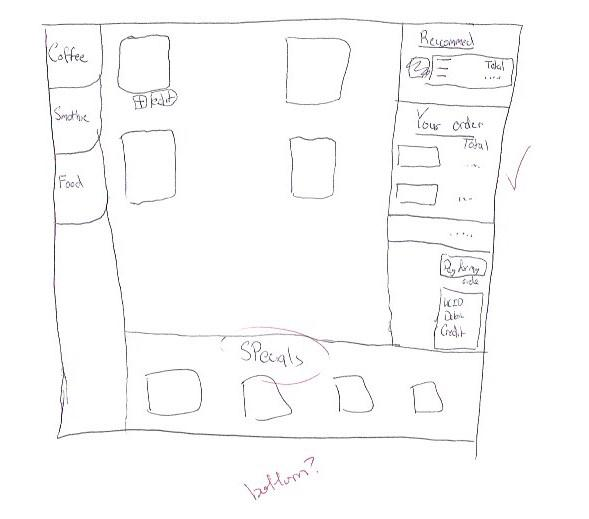 Coffee
Smothie
Food
edit
Recommed
Total
Your order
Total
Pay for my
order
UCID
Debit
Credit
SPecials
bottom?